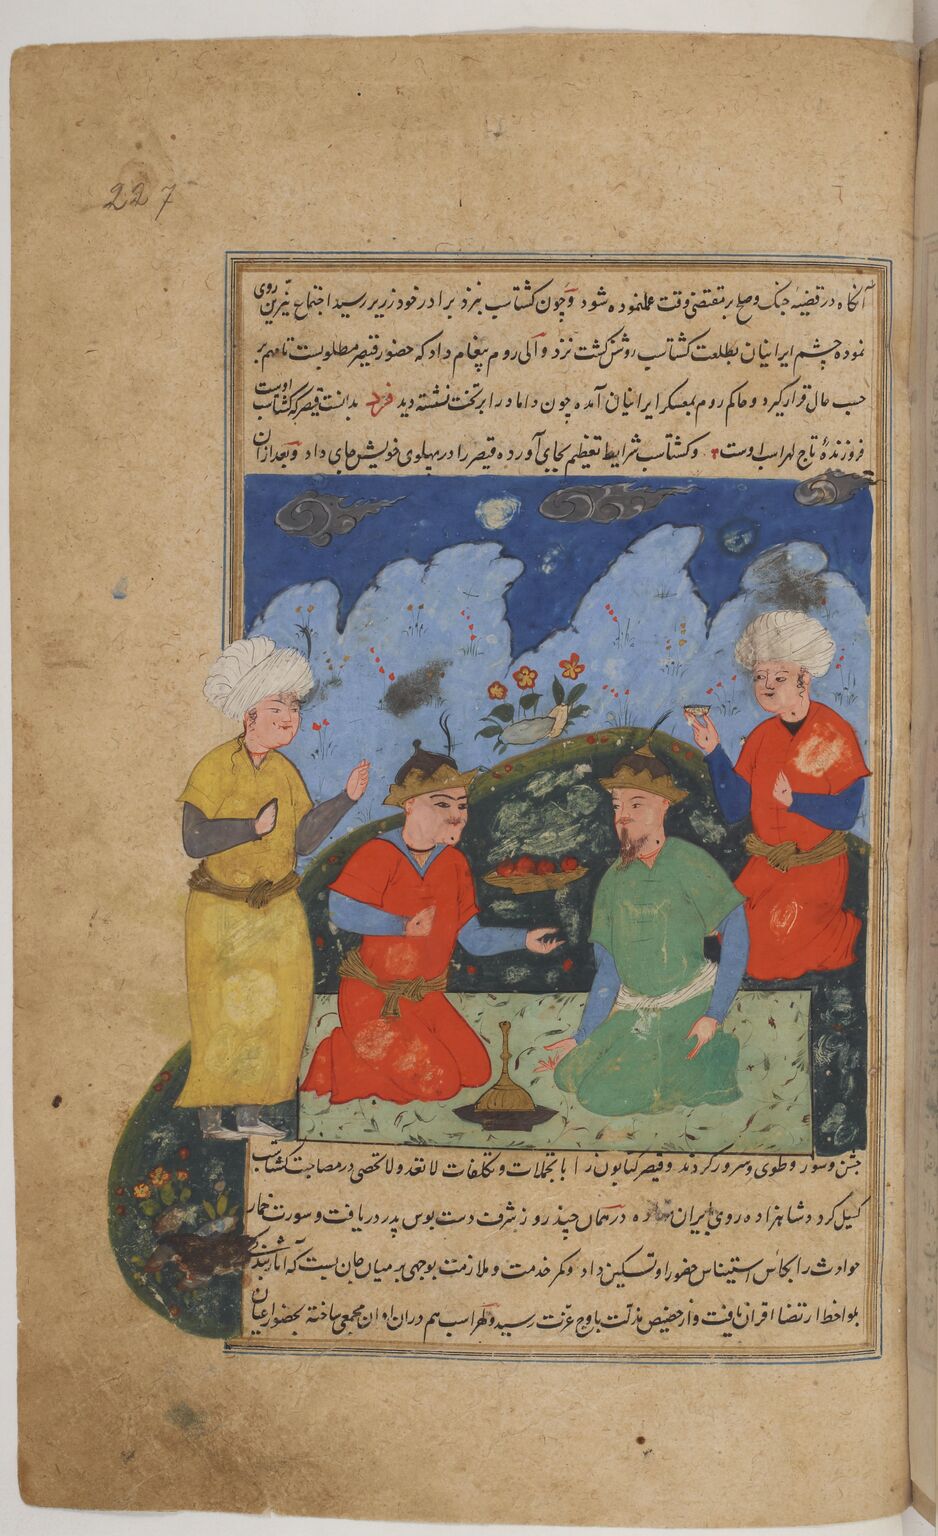 227
آنگاه در قضیه جنگ و صلح بر مقتضی وقت عمل نموده شود و چون کشتاسب نزد برادر خود زریر رسید اجتماع نیرین روی
نموده چشم ایرانیان بطلعت کشتاسب روشن گشت نزد والی روم پیغام داد که حضور قیصر مطلوبست تا مهم بر
حسب حال قرار گیرد و حاکم روم بمعسکر ایرانیان آمده چون داماد را بر تخت نشسته دید فرد بدانست قیصر که کشتاسب اوست
فروزندهٔ تاج لهراسب اوست و کشتاسب شرایط تعظیم بجای آورده قیصر را در پهلوی خویش جای داد و بعد از آن
جشن و سور و طوی و سرور کردند و قیصر کتایون را با تجملات و تکلفات لاتعد و لاتحصی در مصاحبت کشتاسب
کسیل کرد و شاهزاده روی بایران در همان چند روز شرف دست بوس پدر دریافت و سورت خمار
حوادث را بکاس استیناس حضور او تسکین داد و کمر خدمت و ملازمت بوجهی بر میان جان بست که آثار
اقران یافت و از حضیض مذلت باوج عزت رسید و لهراسب هم دران اوان مجمعی ساخته بحضور اعیان